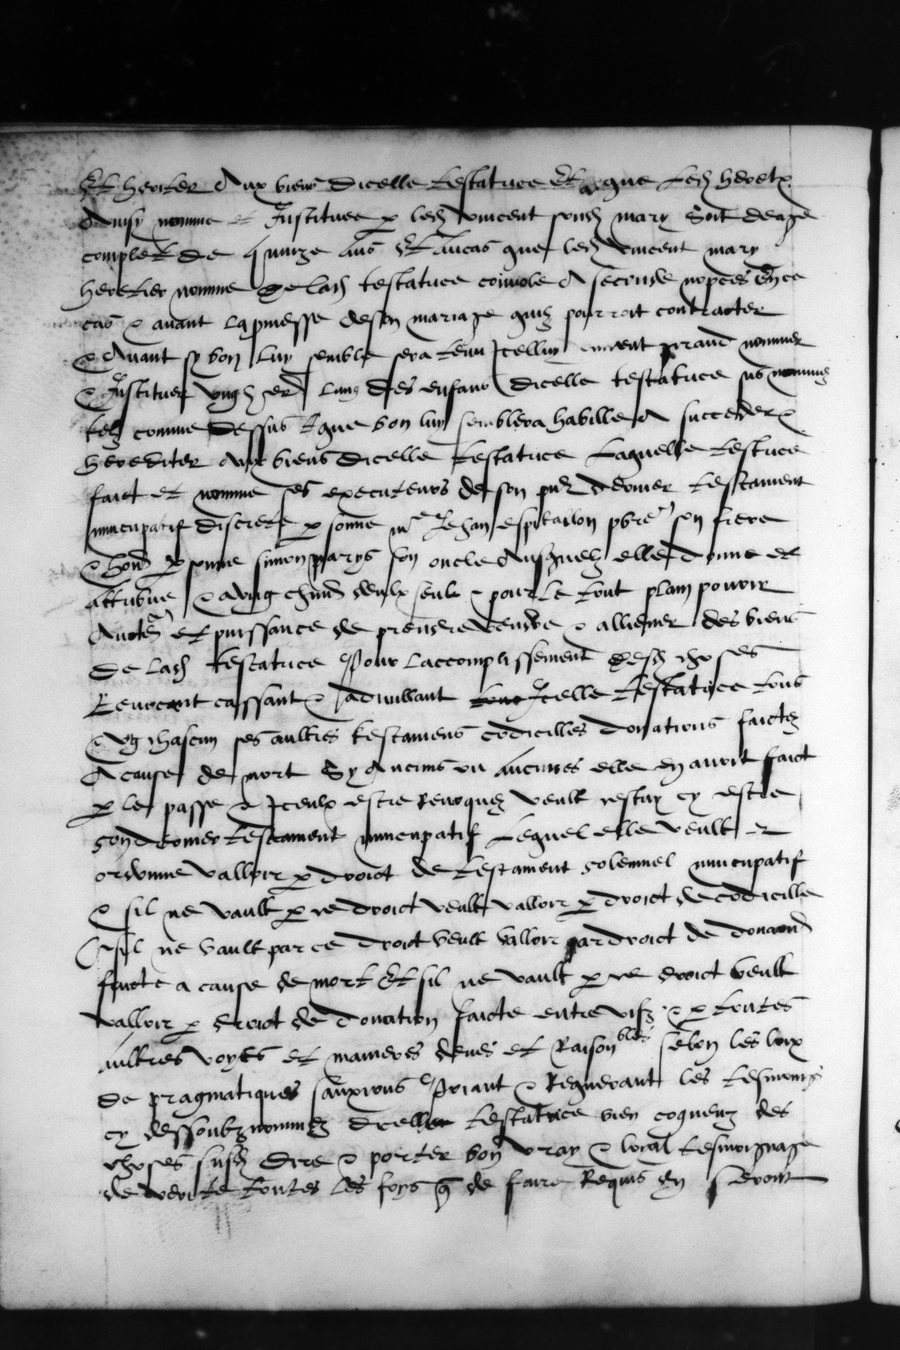 Et heriter aux biens dicelle testatrice Et que led heretr
Ainsy nomme et Institue p led vincent sond mary Soit deage
complet de quinze ans Et aucas que led vincent mary
heretier nomme de lad testatrice convole a seconde nopces En ce
cas & avant la pmesse deson mariage quil pourroit contracter
& Avant sy bon luy semble sera tenu Icelluy vincent grand nommer
& Instituer ung her lung des enfans dicelle testatrice sus nommes
telz comme dessus & que bon luy semblera habille A succeder &
herediter aux biens dicelle testatrice Laquelle testrice
faict et nomme ses executeurs de son pnt & dernier testament
nuncupatif discrete psonne me Jehan espitallon pbre son frere
& hon psonne simon marys son oncle Ausquelz elle donne et
attribue & a ung chun deulx seul & pour le tout plain povoir
Aucte et puissance de prendre vendre & alliener des biens
de lad testatrice Pour laccomplissement desd choses
Revocant cassant & adnullant Icelle testatrice tous
& ung chascun ses aultres testamens codicilles donations faictes
A cause de mort Sy Aucuns ou Aucunes elle en avoit faict
p le passe & Iceulx estre Revoquez veult cestuy cy estre
son dernier testament nuncupatif Lequel elle veult &
ordonne valloir p droict de testament solennel nuncupatif
& sil ne vault p ce droict veult valloir p droict de codicille
Et sil ne vault par ce droit veult valloir par droict de donaon
faicte a cause de mort Et sil ne vault p ce droict veult
valloir p droict de donation faicte entre vifz & p toutes
aultres voyes et manieres deues et Raisonbles selon les loix
de pragmatiques sanxions Priant & Requerant les tesmoings
cy dessoubz nommez dicelle testatrice bien cogneuz des
choses susd dire & porter bon vray & loyal tesmoignage
de verite toutes les foys q de faire Requis en seront